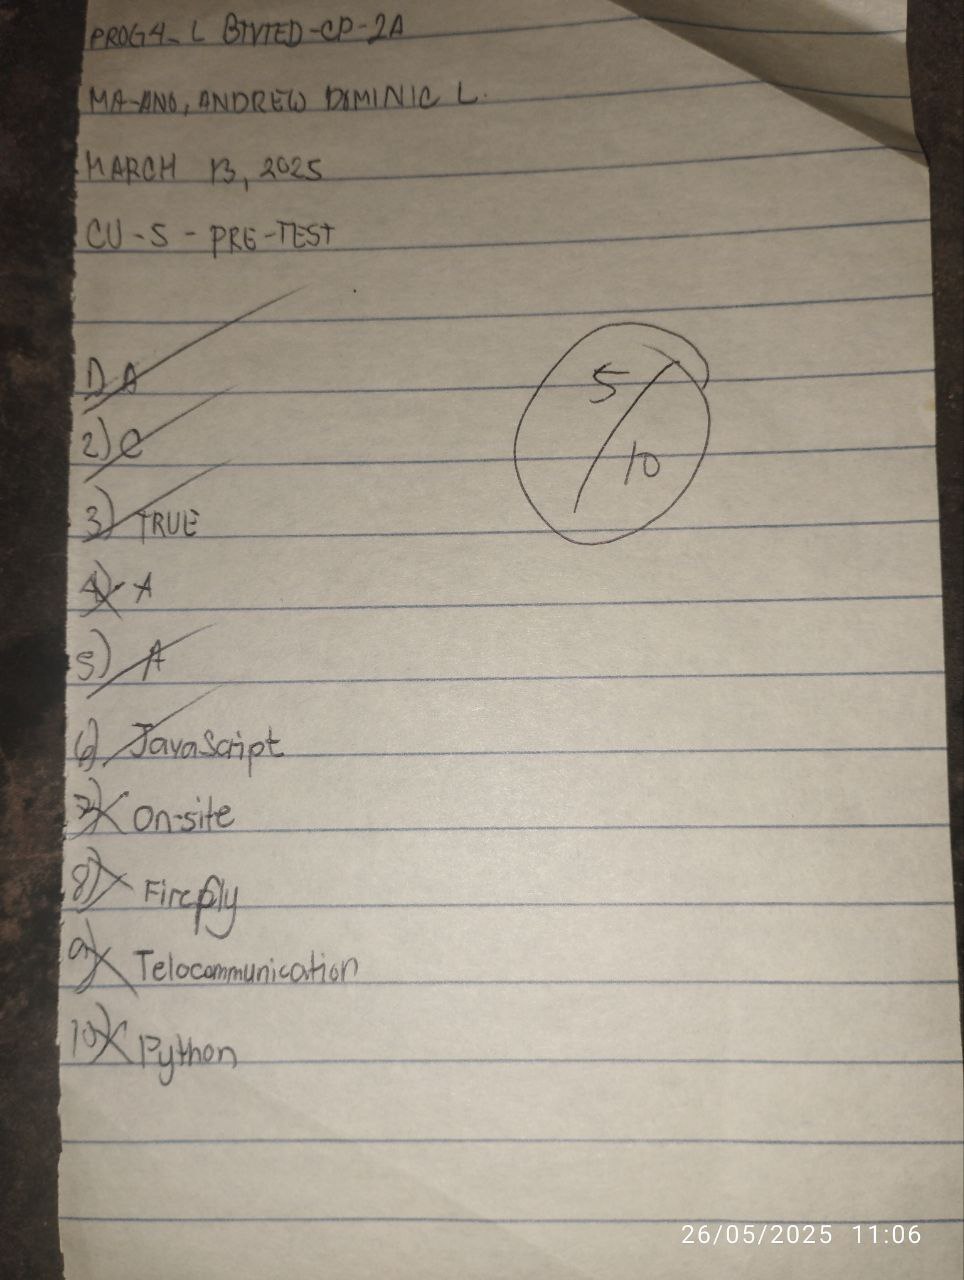 PROG4-L BTVTED-CP-2A
MA-ANO, ANDREW DOMINIC L.
MARCH 13, 2025
CU-5 - PRE-TEST
1) A
2) C
3) TRUE
4) A
5) A
6) JavaScript
7) On-site
8) Firefly
9) Telocommunication
10) Python
5/10
26/05/2025 11:06